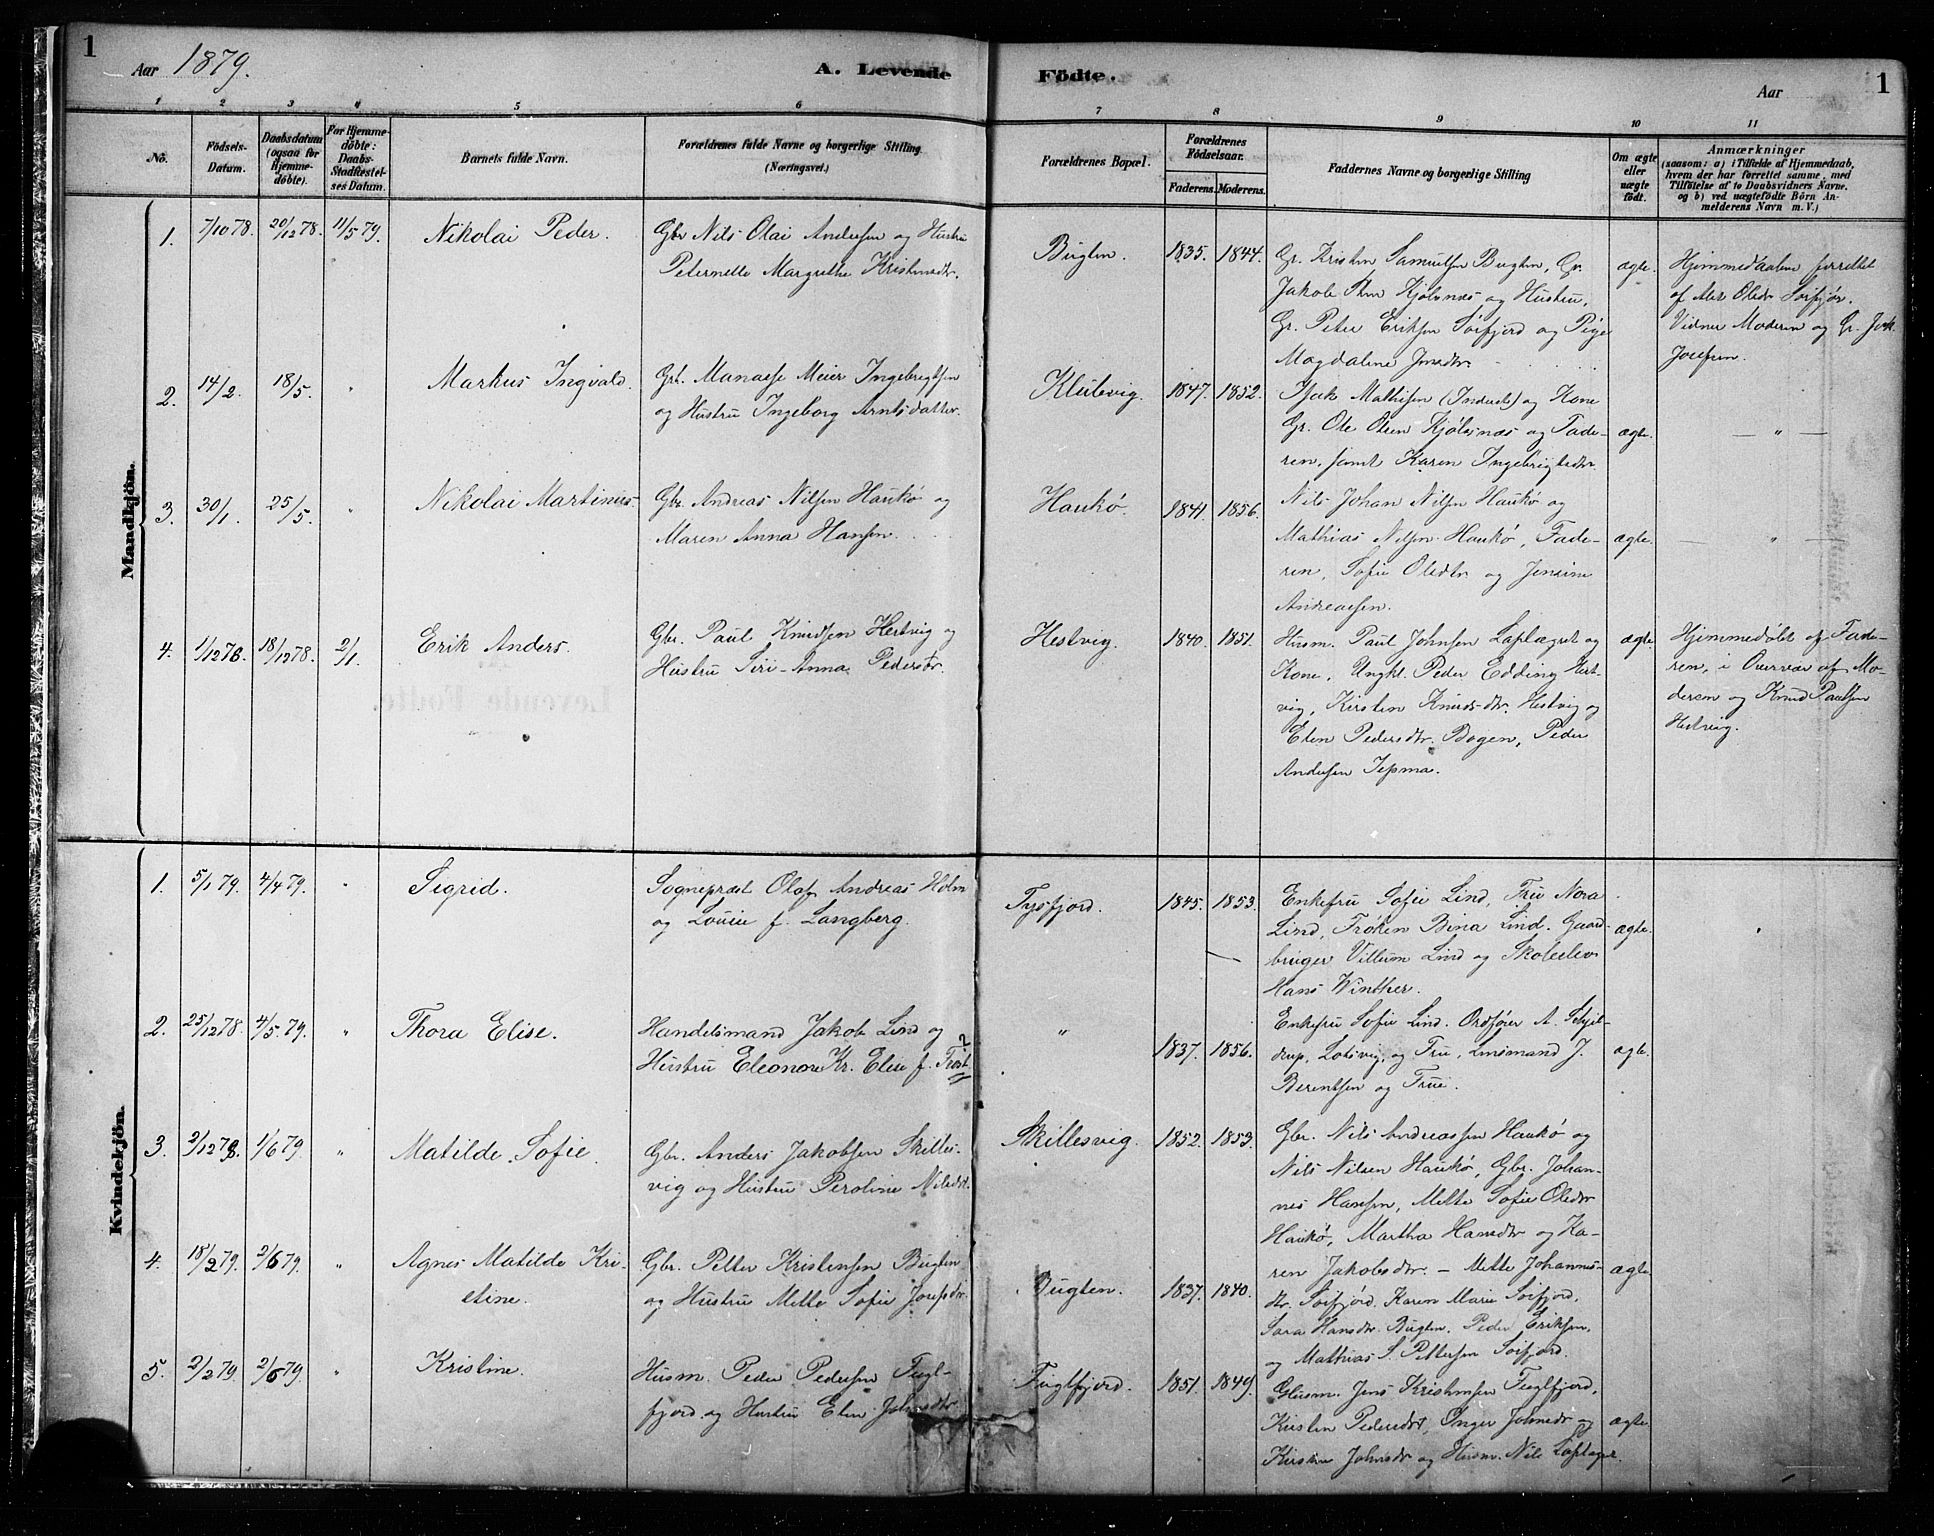 1
Aar 1879.
A. Levende Födte.
Aar
1
1 2 3 4 5 6 7 8 9 10 11
No.
Födsels-Datum.
Daabsdatum (ogsaa for Hjemme-döbte).
For Hjemme-döbte: Daabs-Stadfæstel-ses Datum.
Barnets fulde Navn.
Forældrenes fulde Navne og borgerlige Stilling (Næringsvei.)
Forældrenes Bopæl.
Forældrenes Födselsaar.
Faderens. Moderens.
Faddernes Navne og borgerlige Stilling
Om ægte eller uægte födt.
Anmærkninger
(saasom: a) i Tilfælde af Hjemmedaab,
hvem der har forrettet samme, med
Tilføielse af to Daabsvidners Navne.
og b) ved uægtefödte Börn An-
melderens Navn m. V.)
Mandkjön.
1. 7/10 78. 20/12 78. 11/5 79. Nikolai Peder.
Gbr Nils Olai Andersen og Hustru
Peternelle Margrethe Kristensdtr.
Bugten. 1835. 1844.
Gr. Kristen Samuelsen Bugten, Gr.
Jakob Kjølsnes og Hustru,
Gr. Peter Eriksen Sørfjord og Pige
Magdalene Jensdtr.
ægte.
Hjemmedaaben forrettet
af Olsdr Sørfjor.
Vidner Moderen og Gr. Jak
Josefsen.
2. 14/2 18/5. " Markus Ingvald.
Gbr. Manasse Meier Ingebrigtsen
og Hustru Ingeborg Arntsdatter.
Klubvig. 1847. 1852.
Isak Mathisen (Inderst) og Kone
Gr. Ole Olsen Kjølsnæs og Fade-
ren, samt Karen Ingebrigtsdtr.
ægte. — " —
3. 30/1. 25/5. " Nikolai Martinus.
Gbr. Andreas Nilsen Haukø og
Maren Anna Hansen.
Haukø. 1841. 1856.
Nils Johan Nilsen Haukø og
Mathias Nilsen Haukø, Fade-
ren, Sofie Olsdtr og Jensine
Andreassen.
ægte. — " —
4. 1/12 76. 18/12 78. 2/1. Erik Anders.
Gbr. Paul Knudsen Hestvig og
Hustru Siri-Anna Pedersdtr.
Hestvig. 1840. 1851.
Husm. Paul Johnsen Laplæget og
Kone, Ungkl. Peder Edding Hest-
vig, Kirsten Knudsdtr. Hestvig og
Elen Pedersdtr. Bogen, Peder
Andersen Tepma.
ægte.
Hjemmedøbt af Fade-
ren, i Overvær af Mo-
deren og Knud Paulsen
Hestvig.
Levende Födte.
Kvindekjön.
1. 5/1 79. 4/4 79. " Sigrid.
Sognepræst Olaf Andreas Holm
og Louise f. Langberg.
Tysfjord. 1845. 1853.
Enkefru Sofie Lind, Fru Nora
Lind, Frøken Bina Lind. Gaard-
bruger Villum Lind og Skoleelev
Hans Winther.
ægte. "
2. 25/12 78. 4/5 79. " Thora Elise.
Handelsmand Jakob Lind og
Hustru Eleonore Kr. Elise f. Frost ?
" 1837. 1856.
Enkefru Sofie Lind. Ordfører A. Schjel-
drup, Lotsvig, og Frue, Lensmand J.
Berentsen og Frue.
ægte.
3. 2/12 78. 1/6 79. " Matilde Sofie.
Gbr. Anders Jakobsen Skilles-
vig og Hustru Peroline Nilsdtr.
Skillesvig. 1852. 1853.
Gbr. Nils Andreassen Haukø og
Nils Nilsen Haukø, Gbr. Johan-
nes Hansen, Mette Sofie Olsdtr
Haukø, Martha Hansdtr og Ka-
ren Jakobsdtr.
4. 18/2 79. 2/6 79. " Agnes Matilde Kri-
stine.
Gbr. Petter Kristensen Bugten
og Hustru Mette Sofie Josefsdtr.
Bugten. 1837. 1840.
— Mette Johannes-
dtr. Sørfjord, Karen Marie Sørfjord,
Sara Hansdtr. Bugten, Peder Eriksen,
og Mathias S. Pettersen Sørfjord.
ægte.
5. 2/2 79. 2/6 79. " Kristine.
Husm. Peder Pedersen Fugl-
fjord og Hustru Elen Johnsdtr.
Fuglfjord. 1851. 1849.
Husm. Jens Kristensen Fuglfjord,
Kirsten Pedersdtr, Inger Johnsdtr og
Kirsten Johnsdtr og Husm. Nils Laplæget.
ægte.